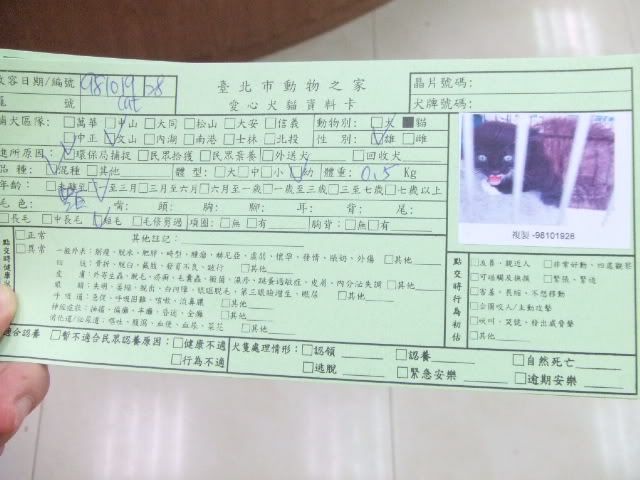 收容日期/編號 98/01/9/28
臺北市動物之家
晶片號碼:
號 cat
愛心犬貓資料卡
犬牌號碼:
捕犬區隊: □萬華 □中山 □大同 □松山 □大安 □信義 動物別: □犬 ■貓
□中正 □文山 □內湖 □南港 □士林 □北投 性別: □雄 □雌
進所原因: □環保局捕捉 □民眾拾獲 □民眾棄養 □外送犬 □回收犬
品種: □混種 □其他 體型: □大 □中 □小 □幼 體重: 0.5 Kg
年齡: □未離乳 □至三月 □三月至六月 □六月至一歲 □一歲至三歲 □三至七歲 □七歲以上
毛色: 黑 嘴: 頭: 胸: 腳: 耳: 背: 尾:
□長毛 □中長毛 □短毛 □毛修剪過 項圈: □無 □有 胸背: □無 □有
複製 -98101928
點交時健康狀
□正常 其他註記:
□異常
一般外表: 削瘦、脫水、肥胖、畸型、腫瘤、赫尼亞、虛弱、懷孕、發情、哺奶、外傷 □其他
肢: 骨折、脫臼、截肢、發育不良、跛行 □其他
皮膚: 外寄生蟲、脫毛、疥癬、毛囊蟲、黴菌、濕疹、跳蚤過敏症、皮屑、內分泌失調 □其他
眼睛: 失明、萎縮、脫出、白內障、眼瞼脫毛、第三眼瞼增生、眼屎 □其他
呼吸道: 急促、呼吸困難、咳嗽、流鼻膿 □其他
神經症狀: 抽搐、偏癱、半癱、昏迷、全癱 □其他
消化道/泌尿道: 嘔吐、腹瀉、血便、血尿、菜花 □其他
點交時行為初估
□友善、親近人 □非常好動、四處觀察
□可碰觸及撫摸 □緊張、緊迫
□害羞、畏縮、不想移動
□企圖咬人/主動攻擊
□吠叫、哭號、發出威脅聲
□其他
適合認養 □暫不適合民眾認養原因: □健康不適
□行為不適
犬隻處理情形: □認領 □認養 □自然死亡
□逃脫 □緊急安樂 □逾期安樂